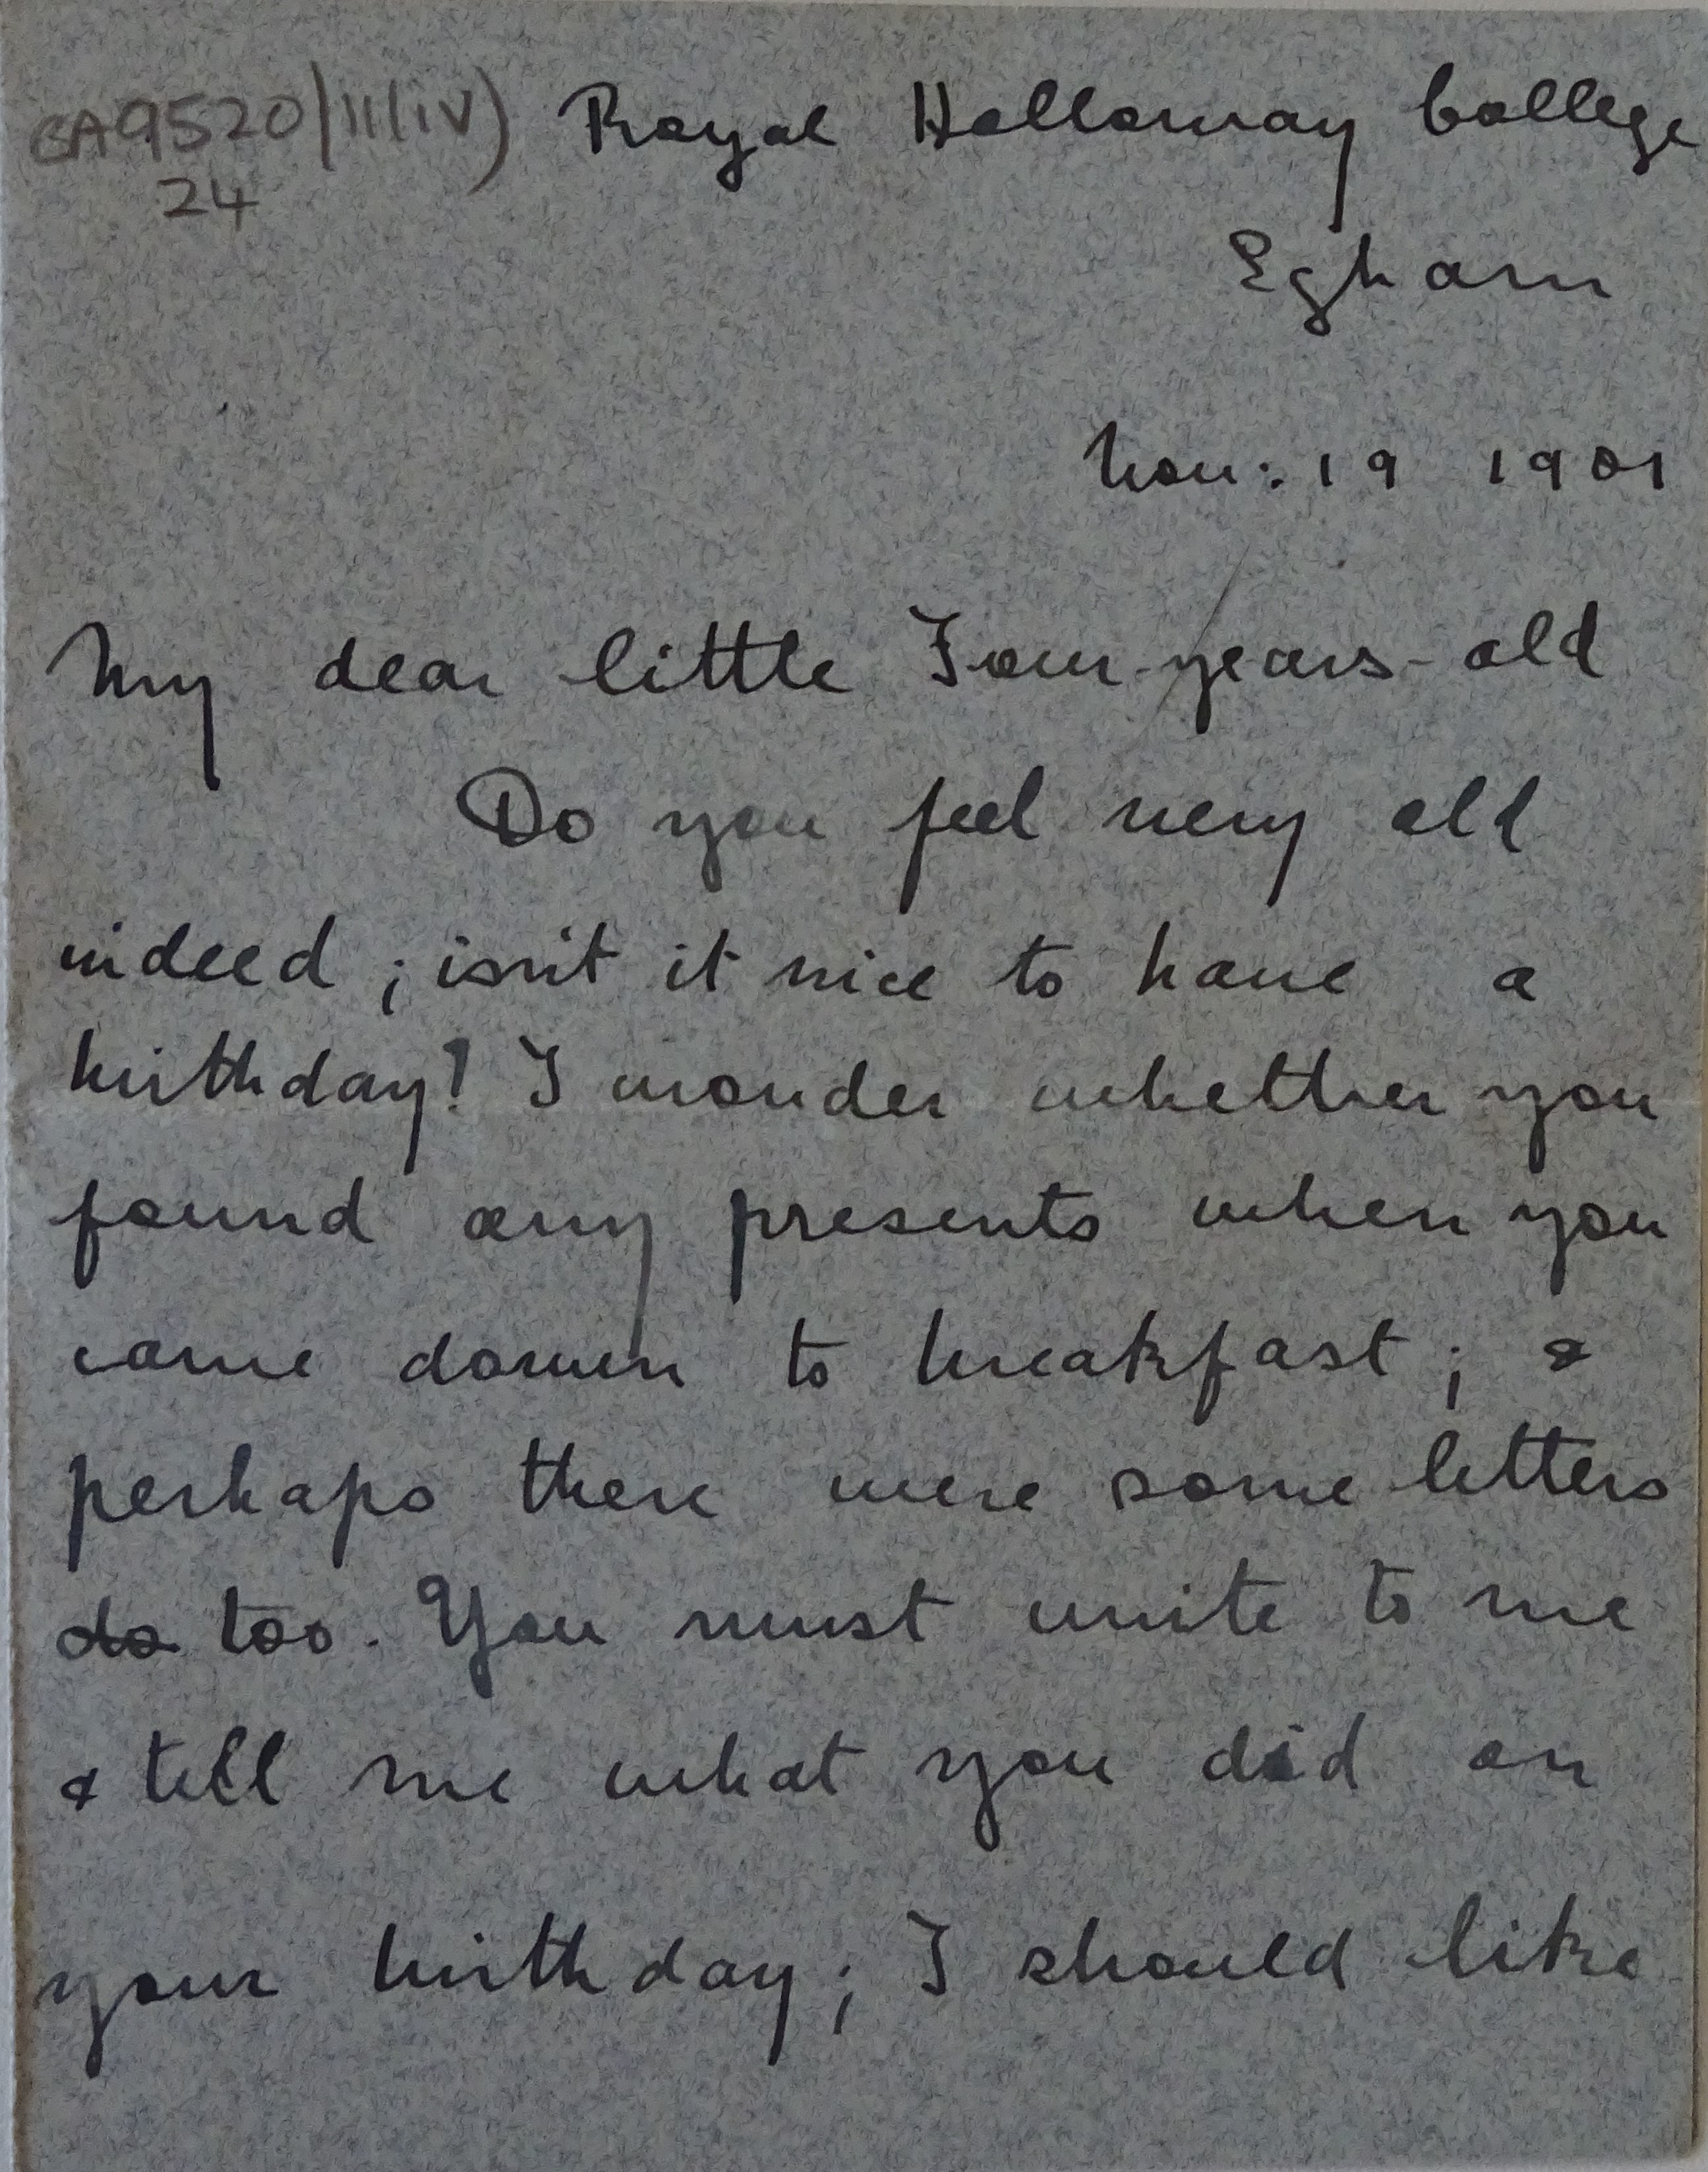 GA9520/II(iv) Royal Holloway College
24
Egham
Nov: 19 1901
My dear little Four-years-old
Do you feel very old
indeed ; isn't it nice to have a
birthday! I wonder whether you
found any presents when you
came down to breakfast ; &
perhaps there were some letters
do too. You must write to me
& tell me what you did on
your birthday; I should like